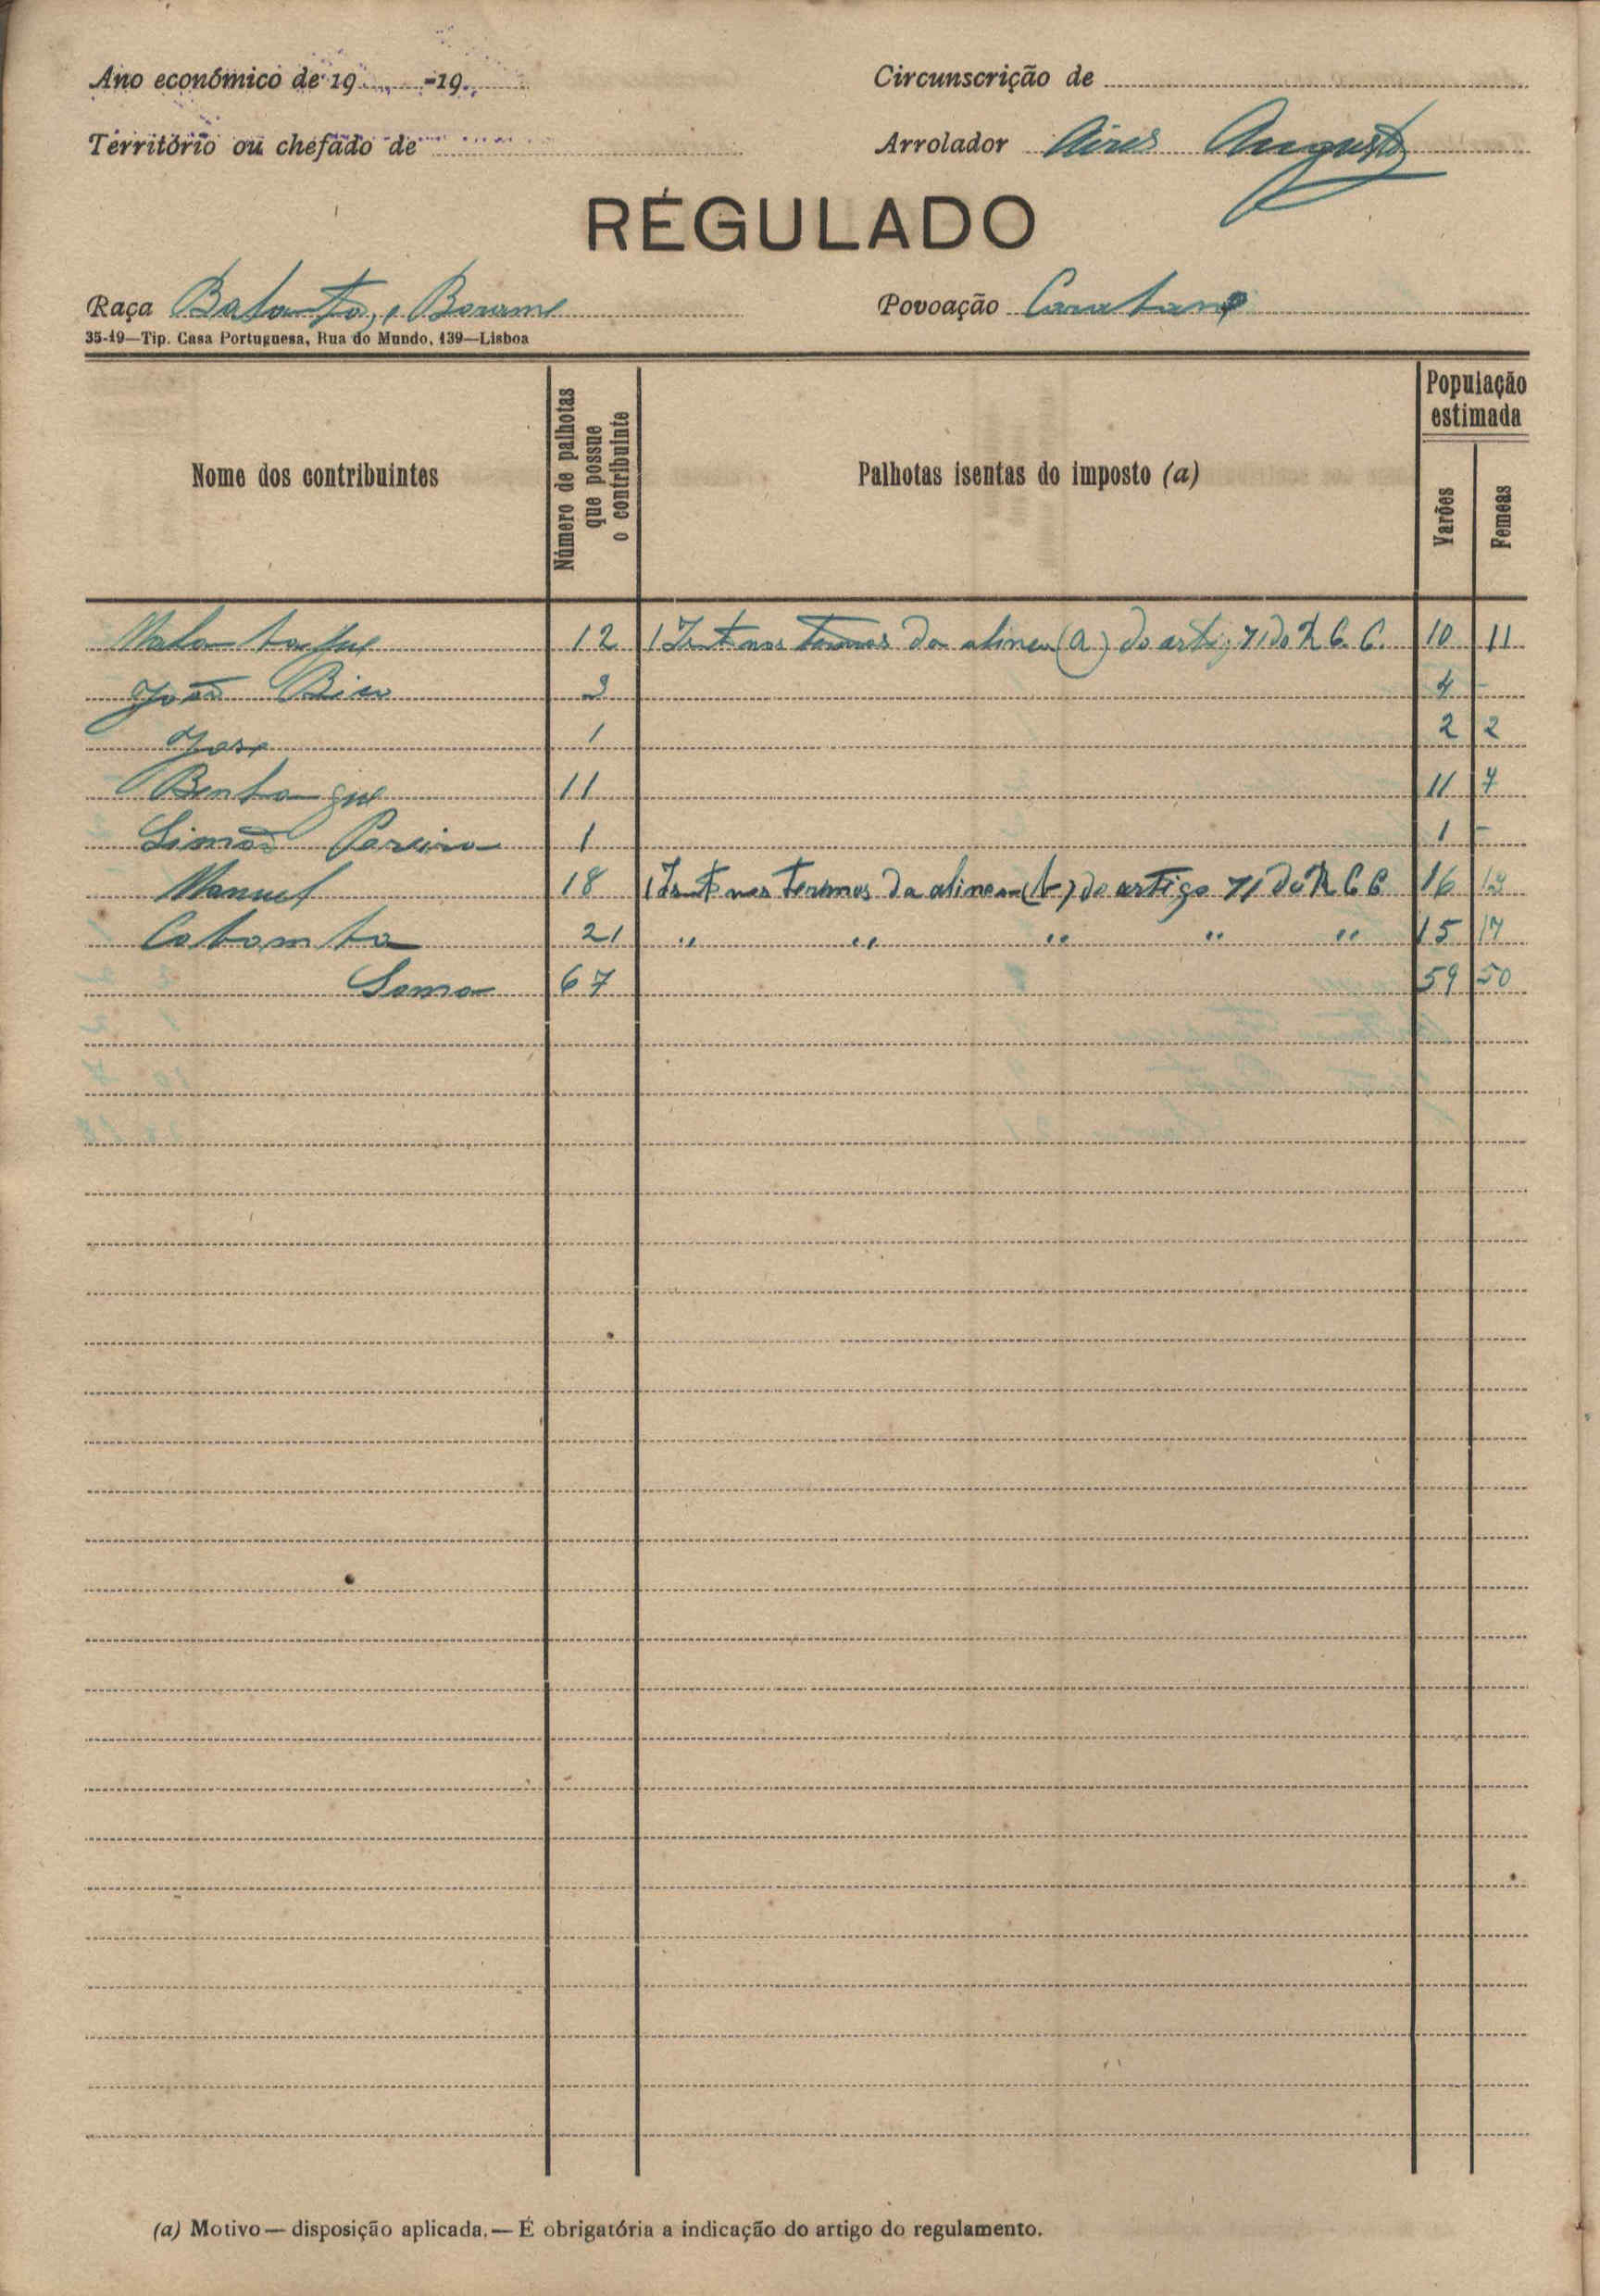 Ano económico de 19 -19
Circunscrição de
Território ou chefado de
Arrolador Aires Augusto
RÉGULADO
Raça Balanta, e Brame
Povoação
35-19—Tip. Casa Portuguesa, Rua do Mundo, 139—Lisboa
Nome dos contribuintes
Número de palhotas
que possue
o contribuinte
Palhotas isentas do imposto (a)
População
estimada
Varões
Femeas
12 1 Isnt nos termos da alinea (a) do artig 71 do R C C. 10 11
João 4 -
José 1 2 2
11 11 7
Simão Pereira 1 1 -
Manuel 18 1 Isnt nos termos da alinea (b) do artigo 71 do R C C 16
21 " " " " " 15
Soma 67 59 50
(a) Motivo — disposição aplicada. — É obrigatória a indicação do artigo do regulamento.